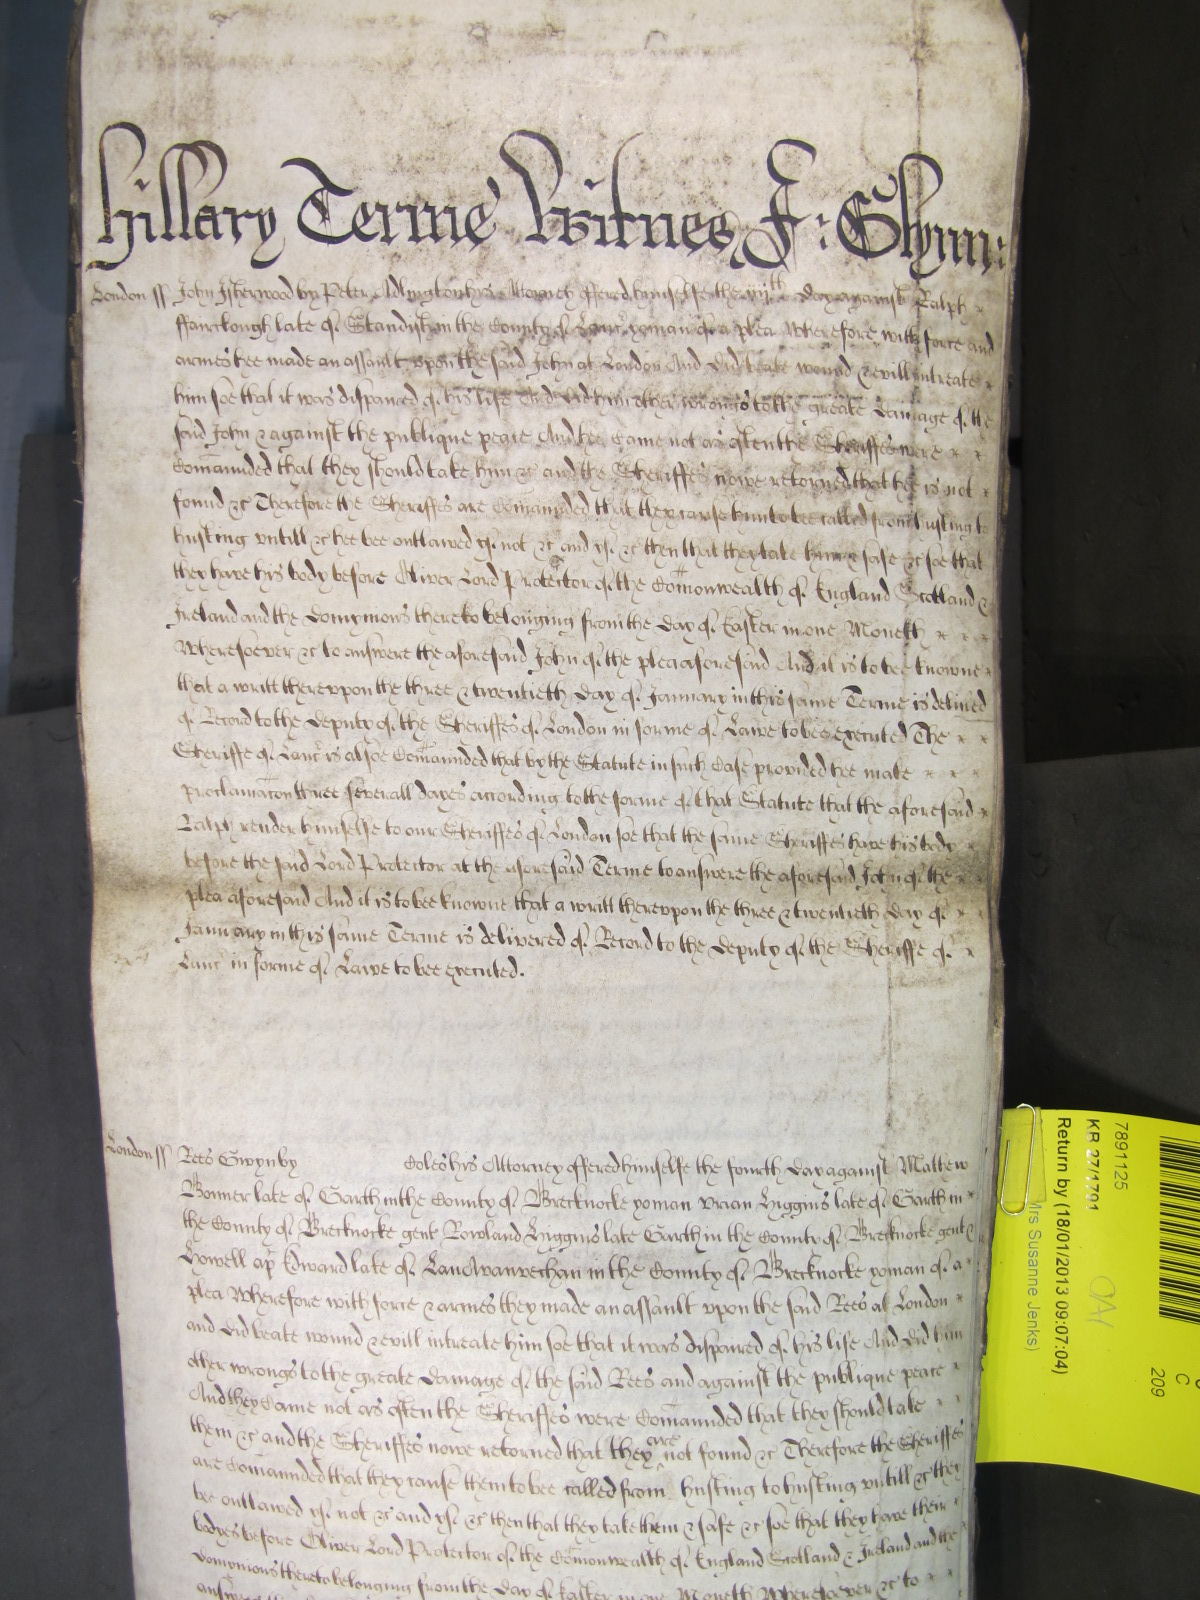 Hillary Terme Witnes J: Glynn:
London ss John Isherwood by Peter Adlington his Attorney offered himselfe the day against Ralph
ffairclough late of Standish in the County of Lanc yoman of a plea Wherefore with force and
armes hee made an assault upon the said John at London And did beate wound & evill intreate
him soe that it was dispaired of his life And did him other wrongs to the greate damage of the
said John & against the publique peace And hee came not as often the Sheriffes were
Comaunded that they should take him &c and the Sheriffes nowe retorned that hee is not
found &c Therefore the Sheriffes are Comaunded that they cause him to bee called from husting to
husting untill &c hee bee outlawed yf not &c and yf &c then that they take him & safe &c soe that
they have his body before Oliver Lord Protector of the Comonwealth of England Scotland &
Ireland and the Domynions thereto belonging from the day of Easter in one Moneth
Wheresoever &c to answere the aforesaid John of the plea aforesaid And it is to bee knowne
that a writt thereupon the three & twentieth day of January in this same Terme is delived
of Record to the deputy of the Sheriffes of London in forme of Lawe to bee executed The
Sheriffe of Lanc is alsoe Comaunded that by the Statute in such Case provided hee make
proclamacon three severall dayes according to the forme of that Statute that the aforesaid
Ralph render himselfe to our Sheriffes of London soe that the same Sheriffes have his body
before the said Lord Protector at the aforesaid Terme to answere the aforesaid John of the
plea aforesaid And it is to bee knowne that a writt thereupon the three & twentieth day of
January in this same Terme is delivered of Record to the deputy of the Sheriffe of
Lanc in forme of Lawe to bee executed.
London ss Rees Gwyn by Coles his Attorney offered himselfe the fourth day against Mathew
Bonner late of Garth in the County of Brecknocke yoman Urian Higgins late of Garth in
the County of Brecknocke gent Rowland Higgins late Garth in the County of Brecknocke gent &
Howell ap Edward late of in the County of Brecknocke yoman of a
plea Wherefore with force & armes they made an assault upon the said Rees at London
and did beate wound & evill intreate him soe that it was dispaired of his life And did him
other wrongs to the greate damage of the said Rees and against the publique peace
And they Came not as often the Sheriffes were Comaunded that they should take
them &c and the Sheriffes nowe retorned that they are not found &c Therefore the Sheriffes
are Comaunded that they cause them to bee called from husting to husting untill &c they
bee outlawed yf not &c and yf &c then that they take them & safe &c soe that they have their
bodyes before Oliver Lord Protector of the Comonwealth of England Scotland & Ireland and the
Domynions thereto belonging from the day of Easter in one Moneth Wheresoever &c to
7891125
KB 27/1791
Return by (18/01/2013 09:07:04)
Mrs Susanne Jenks)
C
209